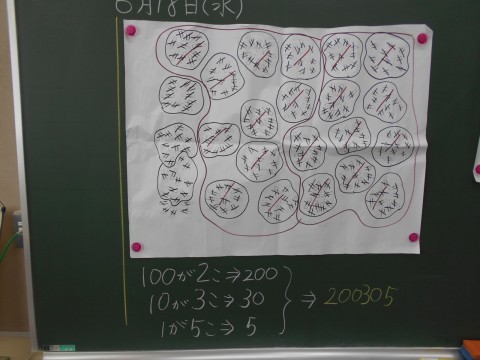 6月18日(水)
100が2こ⇒200
10が3こ⇒30
1が5こ⇒5
⇒200305